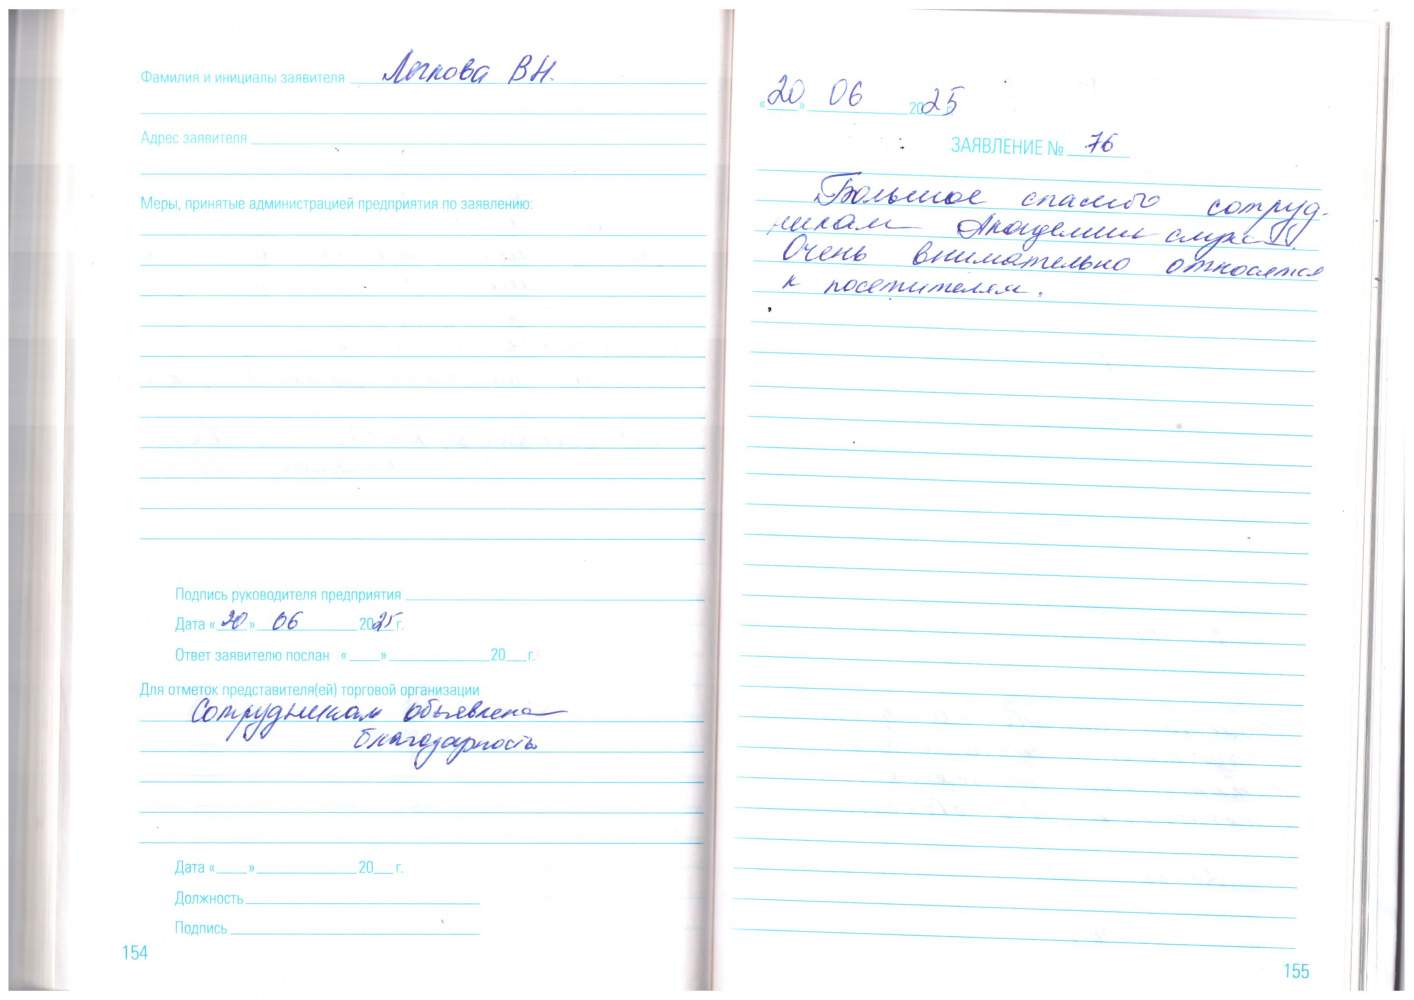 Фамилия и инициалы заявителя Легкова В Н.
Адрес заявителя
Меры, принятые администрацией предприятия по заявлению:
Подпись руководителя предприятия
Дата «20» 06 2025 г.
Ответ заявителю послан « » 20 г.
Для отметок представителя(ей) торговой организации
Сотрудникам объявлена
благодарность
Дата « » 20 г.
Должность
Подпись
154
«20» 06 2025
ЗАЯВЛЕНИЕ № 76
Большое спасибо сотруд-
никам Академии слуха.
Очень внимательно относятся
к посетителям.
155